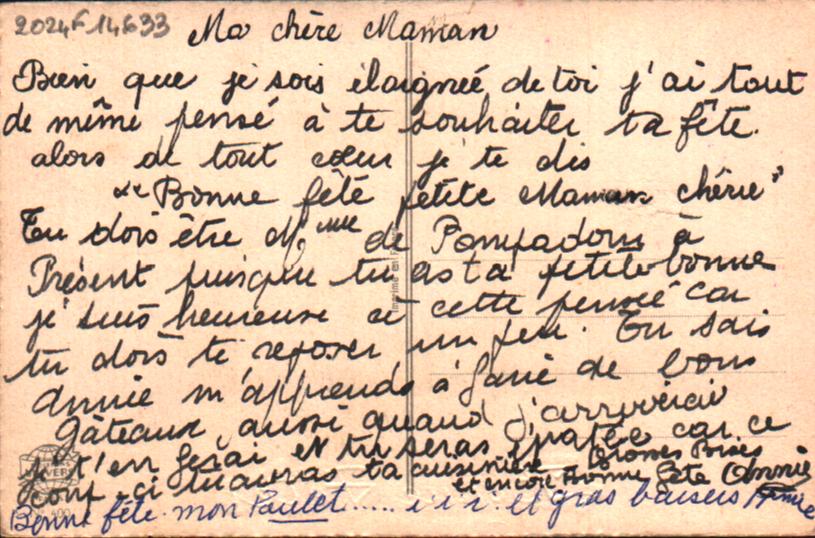 2024F14633
Ma chère Maman
Bien que je sois élaignée de toi j'ai tout
de même pensé à te souhaiter ta fête.
alors de tout cœur je te dis
"Bonne fête petite Maman chérie"
Tu dois être Mme de Pompadour à
Présent puisque tu as ta petite bonne
je suis heureuse à cette pensée car
tu dois te reposer un peu. Tu sais
Annie m'apprends à faire de bons
gâteaux, aussi quand j'arriverai
je t'en ferai et tu seras épatée car ce
coup-ci tu auras ta cuisinière Grosses Bises
et encore Bonne fête Annie
Bonne fête mon Paulet..... i i i. et gros baisers